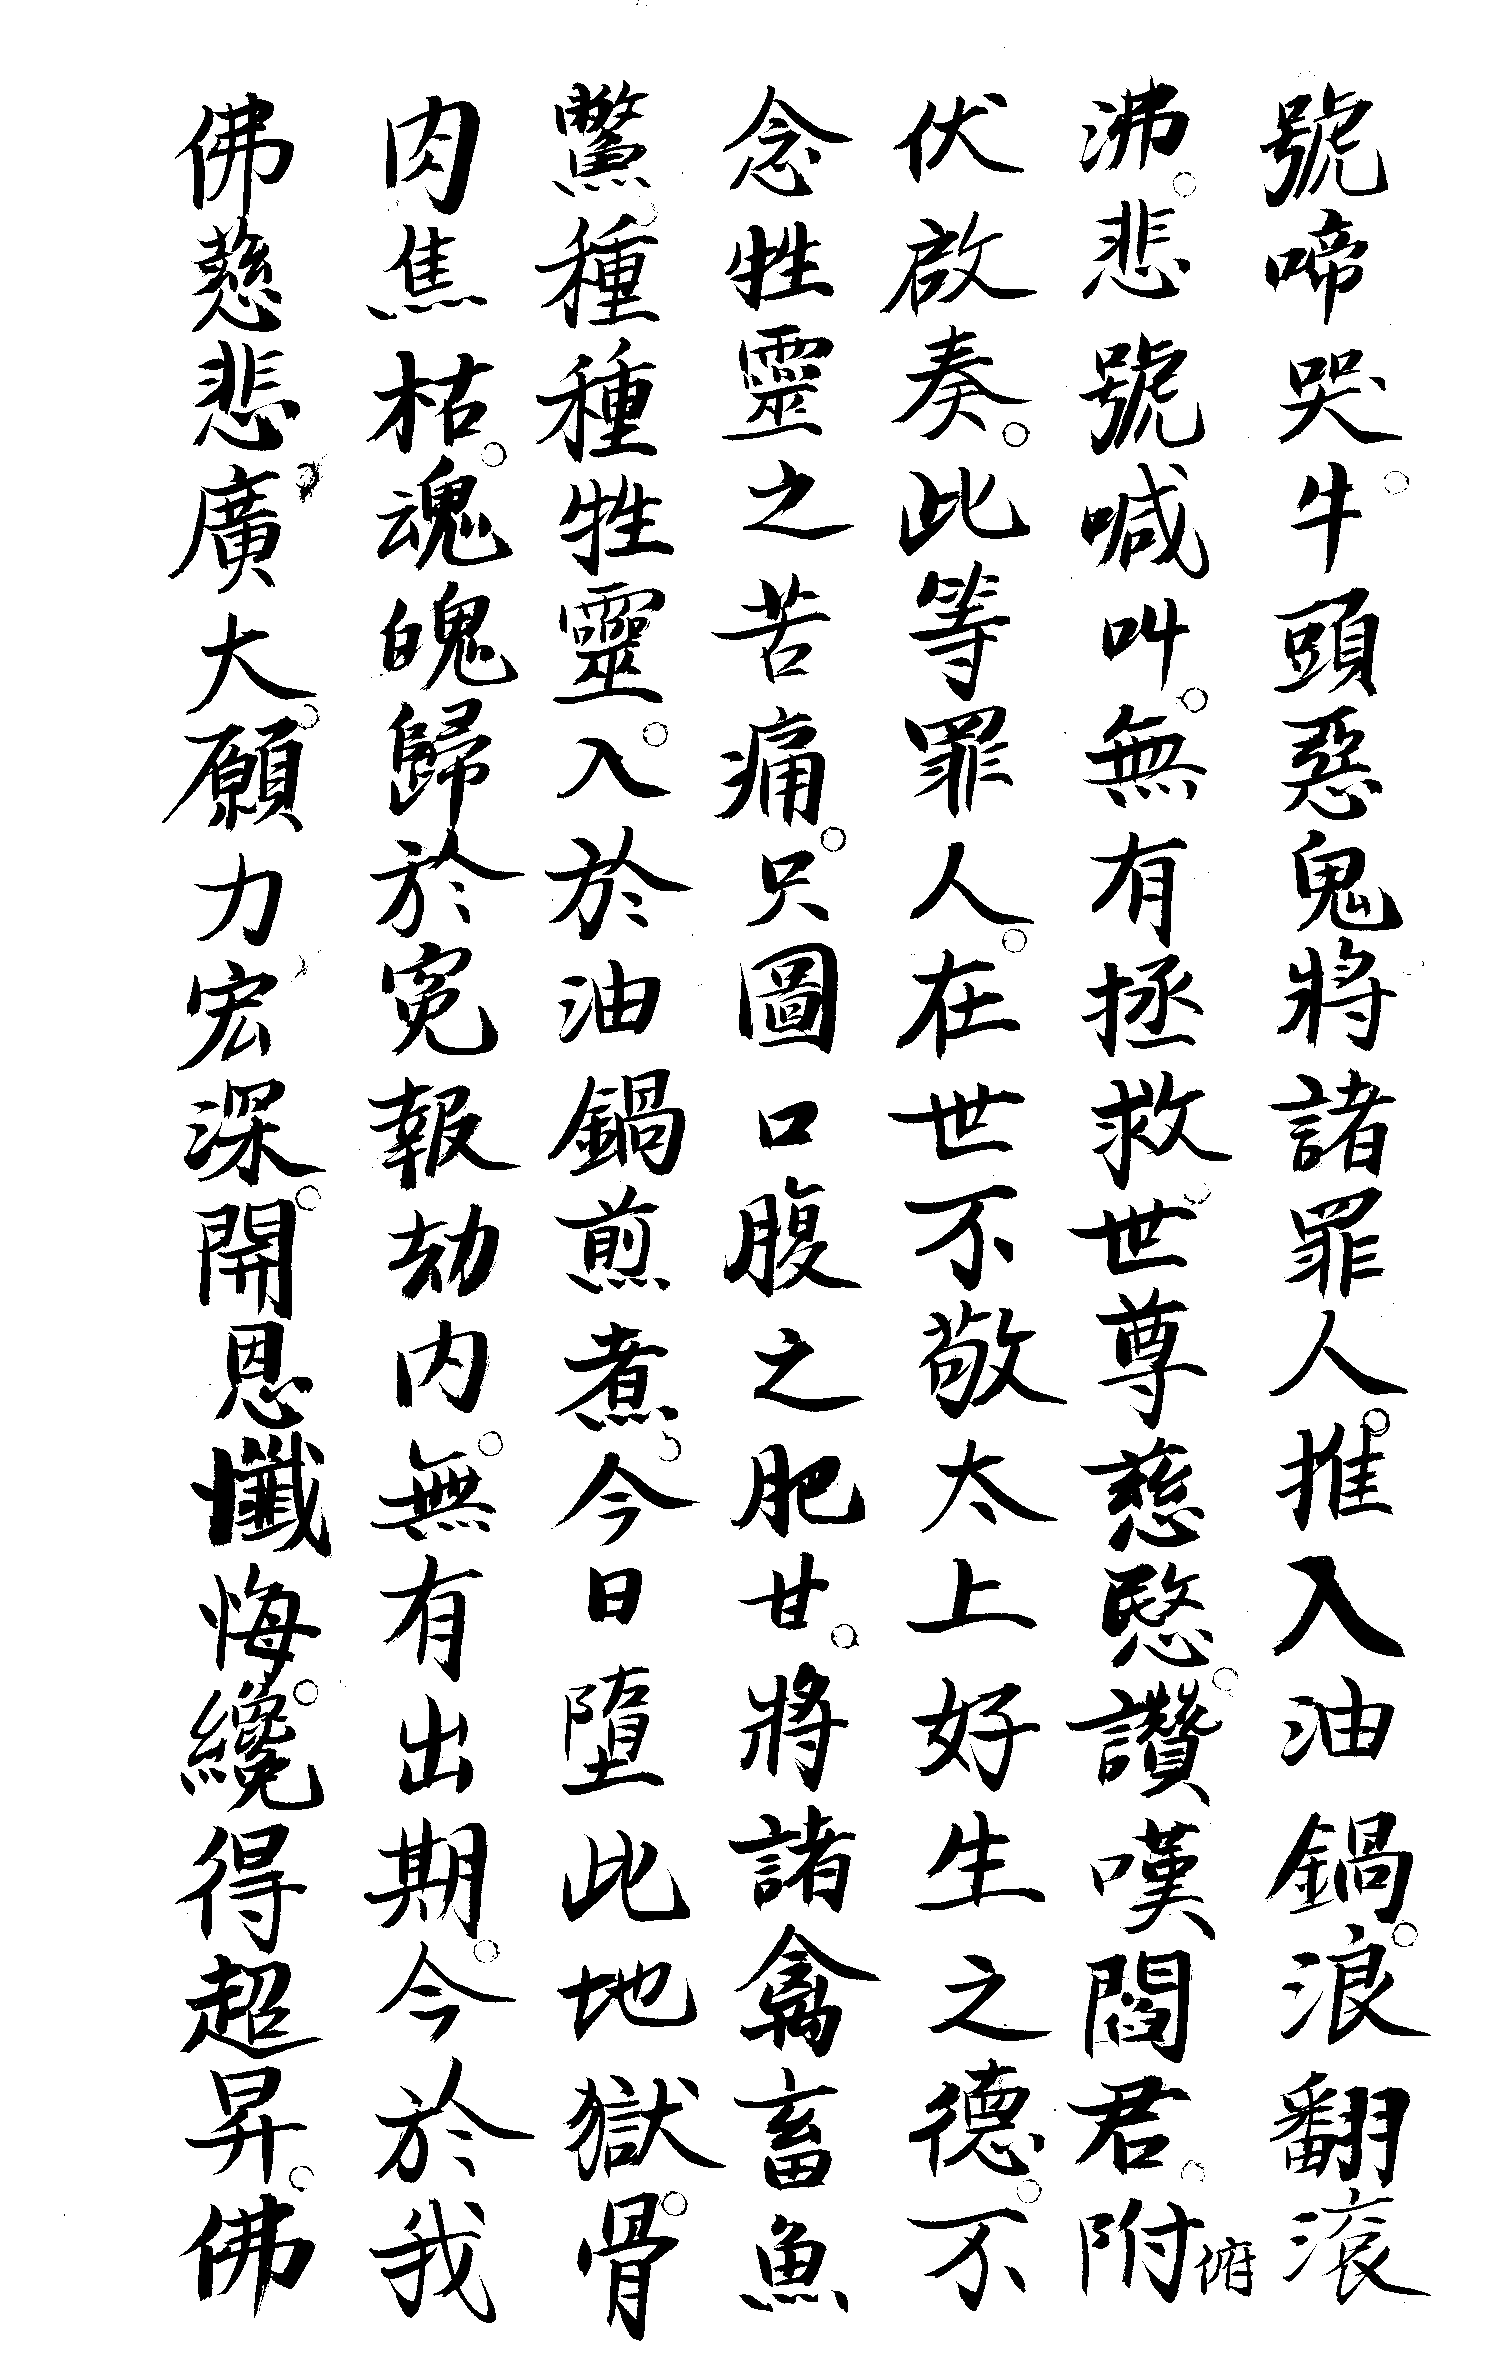 號啼哭。牛頭惡鬼將諸罪人。推入油鍋。浪翻滚
沸。悲號喊叫。無有拯救。世尊慈愍。讚嘆閻君。附俯
伏啟奏。此等罪人。在世不敬太上好生之德。不
念牲靈之苦痛。只圖口腹之肥甘。將諸禽畜魚
鱉。種種牲靈。入於油鍋煎煮。今日墮此地獄。骨
肉焦枯。魂魄歸於冤報劫内。無有出期。今於我
佛慈悲。廣大。願力宏深。開恩懺悔。纔得超昇。佛